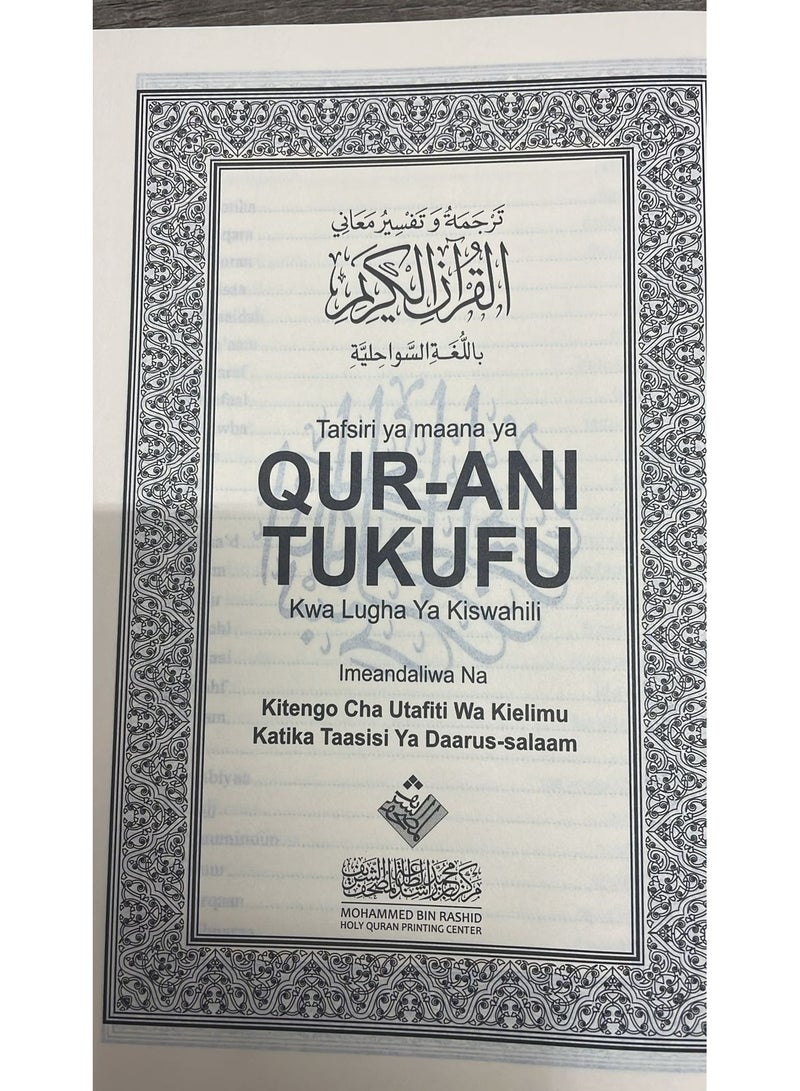 تَرْجَمَةُ وَ تَفْسِيرُ مَعَانِي
القُرْآنِ الكَرِيمِ
بِاللُّغَةِ السَّوَاحِلِيَّةِ
Tafsiri ya maana ya
QUR-ANI
TUKUFU
Kwa Lugha Ya Kiswahili
Imeandaliwa Na
Kitengo Cha Utafiti Wa Kielimu
Katika Taasisi Ya Daarus-salaam
مركز محمد بن راشد لطباعة المصحف الشريف
MOHAMMED BIN RASHID
HOLY QURAN PRINTING CENTER